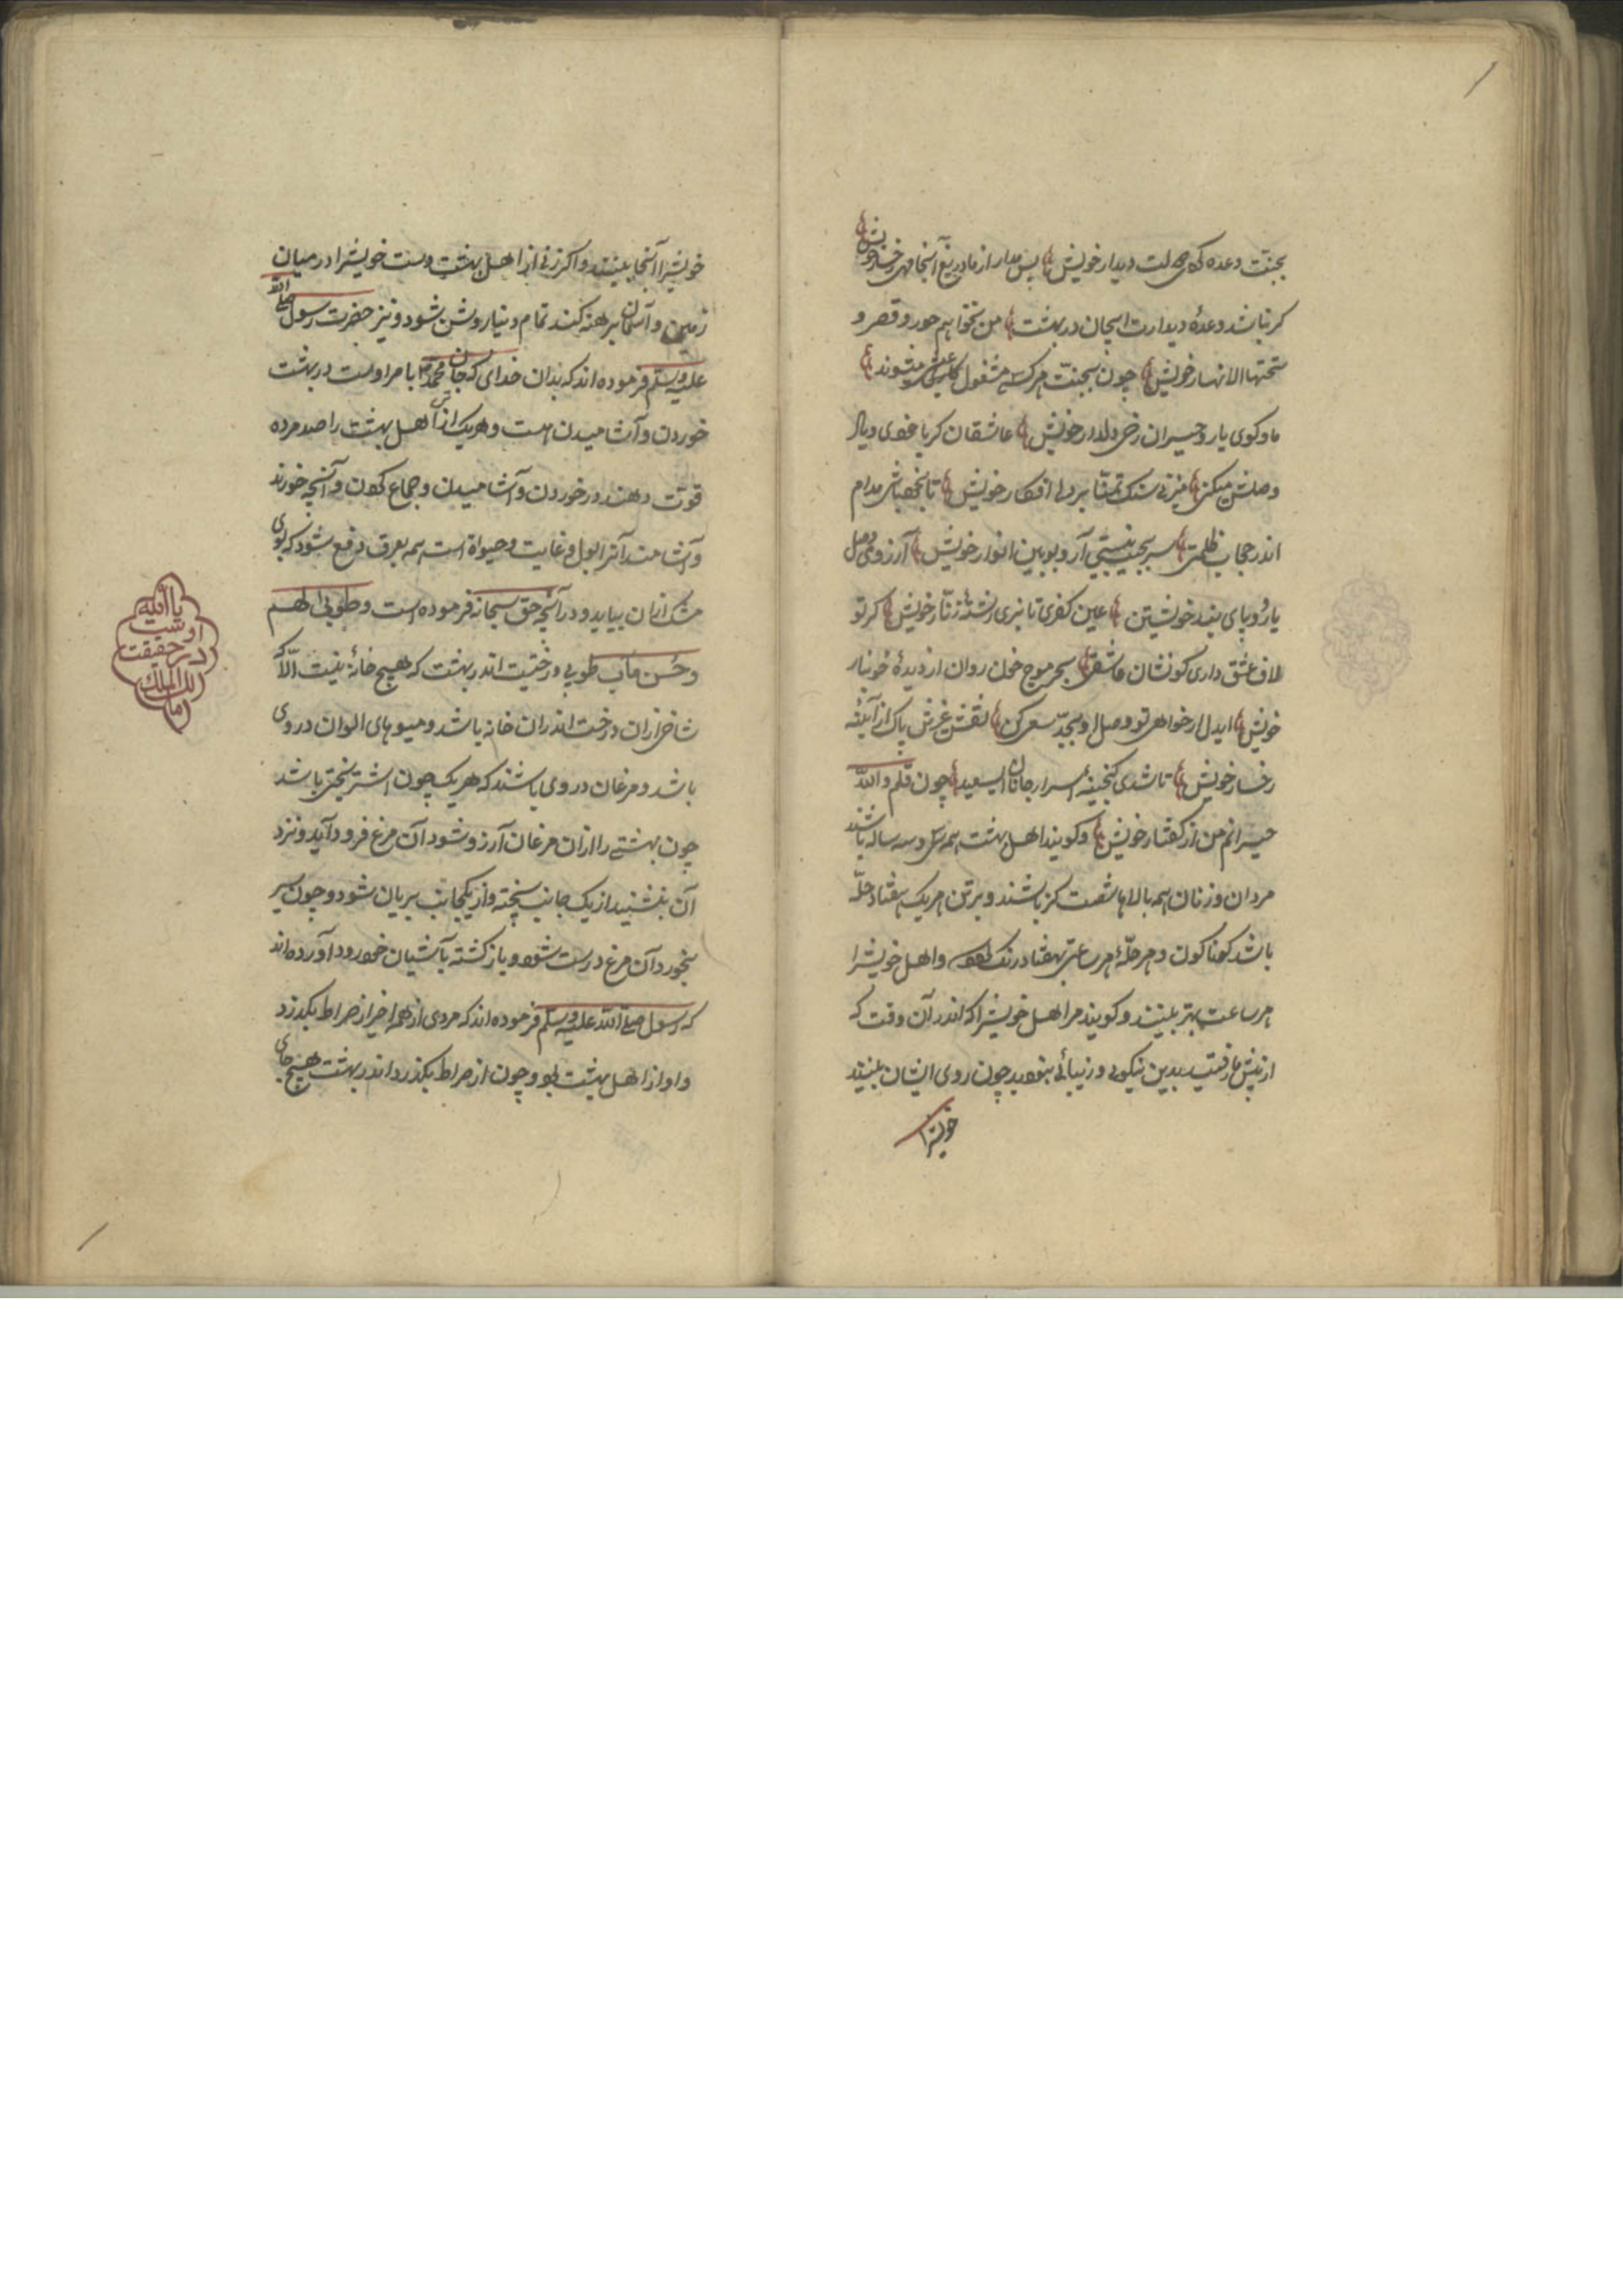 بجنت وعده کردی دولت دیدار خویش پس مدار از ما دریغ آنجا مهی رخسار خویش
کر نباشد وعدهٔ دیدارت ایجان در بهشت من نخواهم حور و قصر و
تحتها الانهار خویش چون بجنت هر کسی مشغول عیش میشوند
ما و کوی یار و حیران رخ دلدار خویش عاشقان کریا
وصلش میکنی میزنی سنک تمنا بر دل افکار خویش تا بخود باشی مدام
اندر حجاب ظلمتی سر بجیب نیستی آر و ببین انوار خویش آرزوی وصل
یار و پای بند خویشتن عین کفری تا نبری رشتهٔ زنار خویش کر تو
لاف عشق داری کو نشان عاشقی بحر موج خون روان از دیدهٔ خونبار
خویش ایدل ار خواهی تو وصل او بجد سعی کن نقش غیرش پاک از آیینه
رخسار خویش تا شدی کنجینهٔ اسرار جانان ایسعید چون قلم والله
حیرانم من از کفتار خویش و کویند اهل بهشت همه سی و سه ساله باشند
مردان و زنان همه بالاها شصت کز باشند و بر تن هر یک هفتاد حله
باشد کوناکون و هر حلهٔ هر ساعتی بهفتاد رنک بود و اهل خویشرا
هر ساعت بهتر بینند و کویند مر اهل خویشرا که اندر آن وقت که
از پیش ما رفتید بدین نیکویی و زیبائی نبودید چون روی ایشان بینند
خویشرا
خویشرا آنجا بینند و اکر زنی از اهل بهشت دست خویشرا در میان
زمین و آسمان برهنه کند تمام دنیا روشن شود و نیز حضرت رسول صلی الله
علیه وسلم فرموده اند که بدان خدای که جان محمد با مر اوست در بهشت
خوردن و آشامیدن هست و هر یک از اهل بهشت را صد مرده
قوت دهند در خوردن و آشامیدن و جماع کردن و آنچه خورند
و آشامند آنرا بول و غایت و حیواة است همه بعرق دفع شود که بوی
مشک ازان بیاید و در آنچه حق سبحانه فرموده است و طوبی لهم
وحسن مآب طوبی درختیست اندر بهشت که هیچ خانهٔ نیست الا که
شاخی ازان درخت اندران خانه باشد و میوهای الوان در وی
باشد و مرغان در وی باشند که هر یک چون اشتر بختی باشد
چون بهشتی را ازان مرغان آرزو شود آن مرغ فرود آید و نزد
آن بنشیند از یک جانب پخته و از یکجانب بریان شود و چون سیر
بخورد آن مرغ درست شود و باز کشته بآشیان خود رود آورده اند
که رسول صلی الله علیه وسلم فرموده اند که مردی از همه اخیر از صراط بکذرد
و او از اهل بهشت بود چون از صراط بکذرد اندر بهشت هیچ جای
یا الله
اوست
در حقیقت
مالک الملک